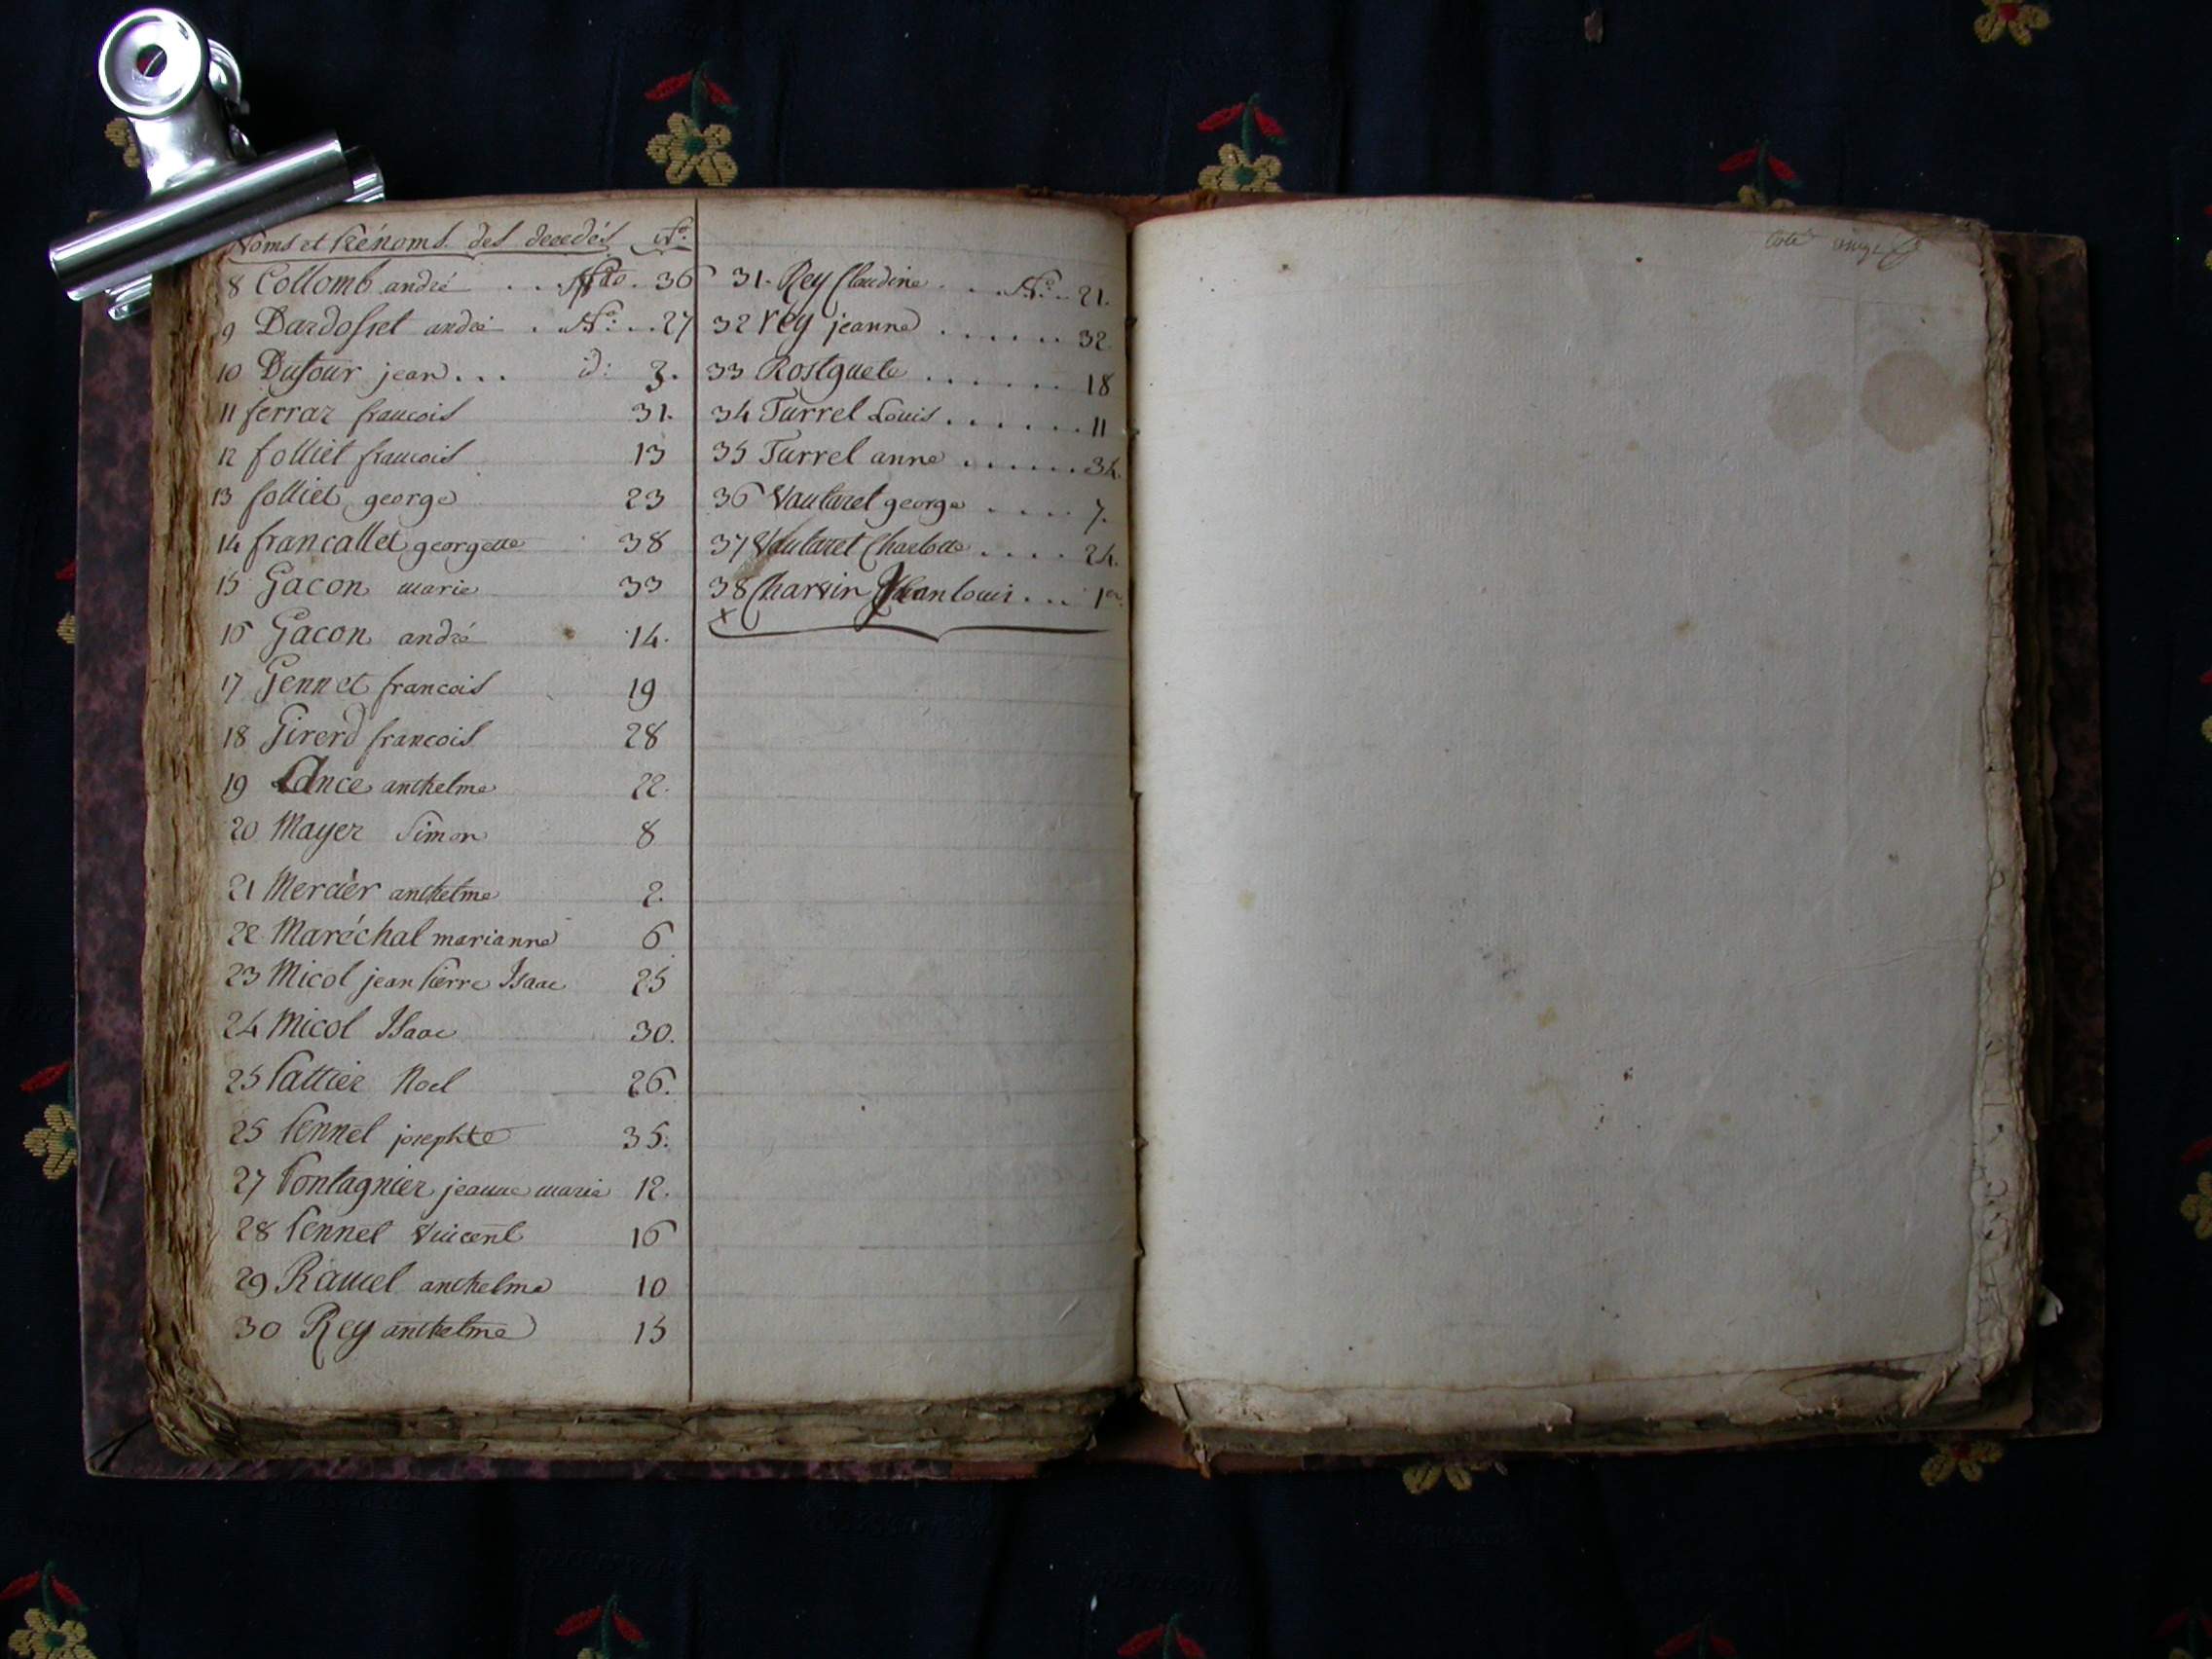 Noms et Prénoms des decedés N.º
8 Collomb andré . . N.º 36
9 Dardossel andré . . N.º . . 27
10 Dufour jean . . . id: 3.
11 ferraz francois 31.
12 folliet francois 13
13 folliet george 23
14 francallet georgette 38
15 Gacon marie 33
16 Gacon andré 14.
17 Gennet francois 19
18 Girerd francois 28
19 Lance anthelme 22.
20 Mayer Simon 8
21 Mercier anthelme 2.
22 Maréchal marianne 6
23 Micol jean Pierre Isaac 25
24 Micol Isaac 30.
25 Pattier Noel 26.
25 Pennel josephte 35.
27 Pontagnier jeanne marie 12.
28 Pennel Vincent 16
29 Ramel anthelme 10
30 Rey anthelme 15
31. Rey Claudine . . . N.º . . 21.
32 rey jeanne . . . . . . 32
33 Rostguete . . . . . . . 18
34 Turrel Louis . . . . . . . 11
35 Turrel anne . . . . . . 34.
36 Vautaret george . . . . 7.
37 Vautaret Charlotte . . . . 24.
38 Charvin Jean louis . . . 1er
x